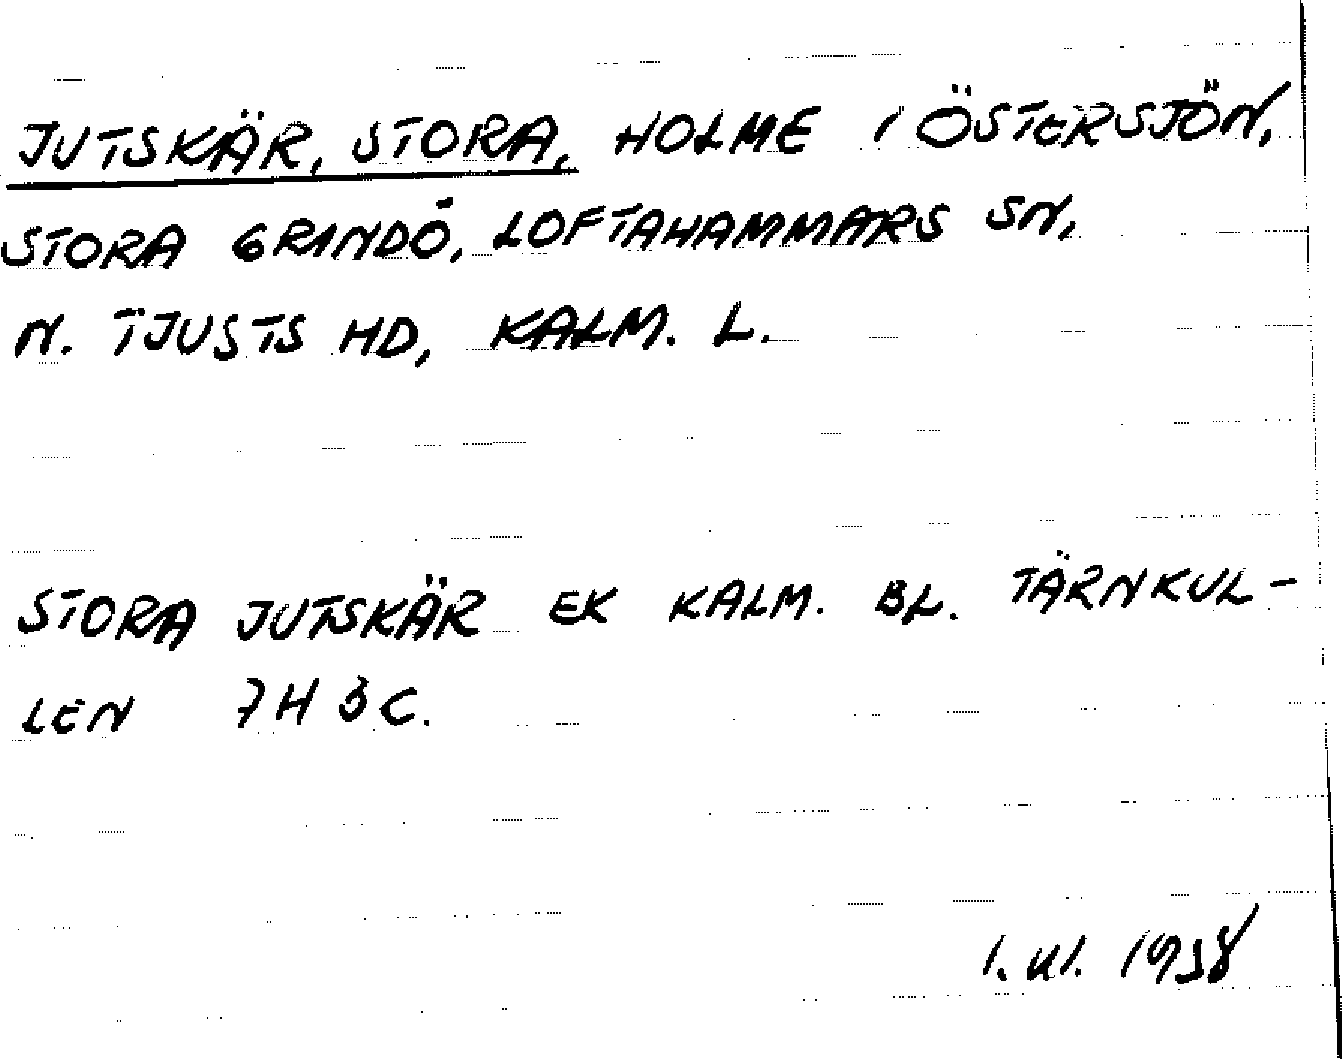 JUTSKÄR, STORA, HOLME I ÖSTERSJÖN,
STORA GRINDÖ, LOFTAHAMMARS SN,
N. TJUSTS HD, KALM. L.
STORA JUTSKÄR EK KALM. BL. TÄRNKUL-
LEN 7H 3C.
1. VI. 1938